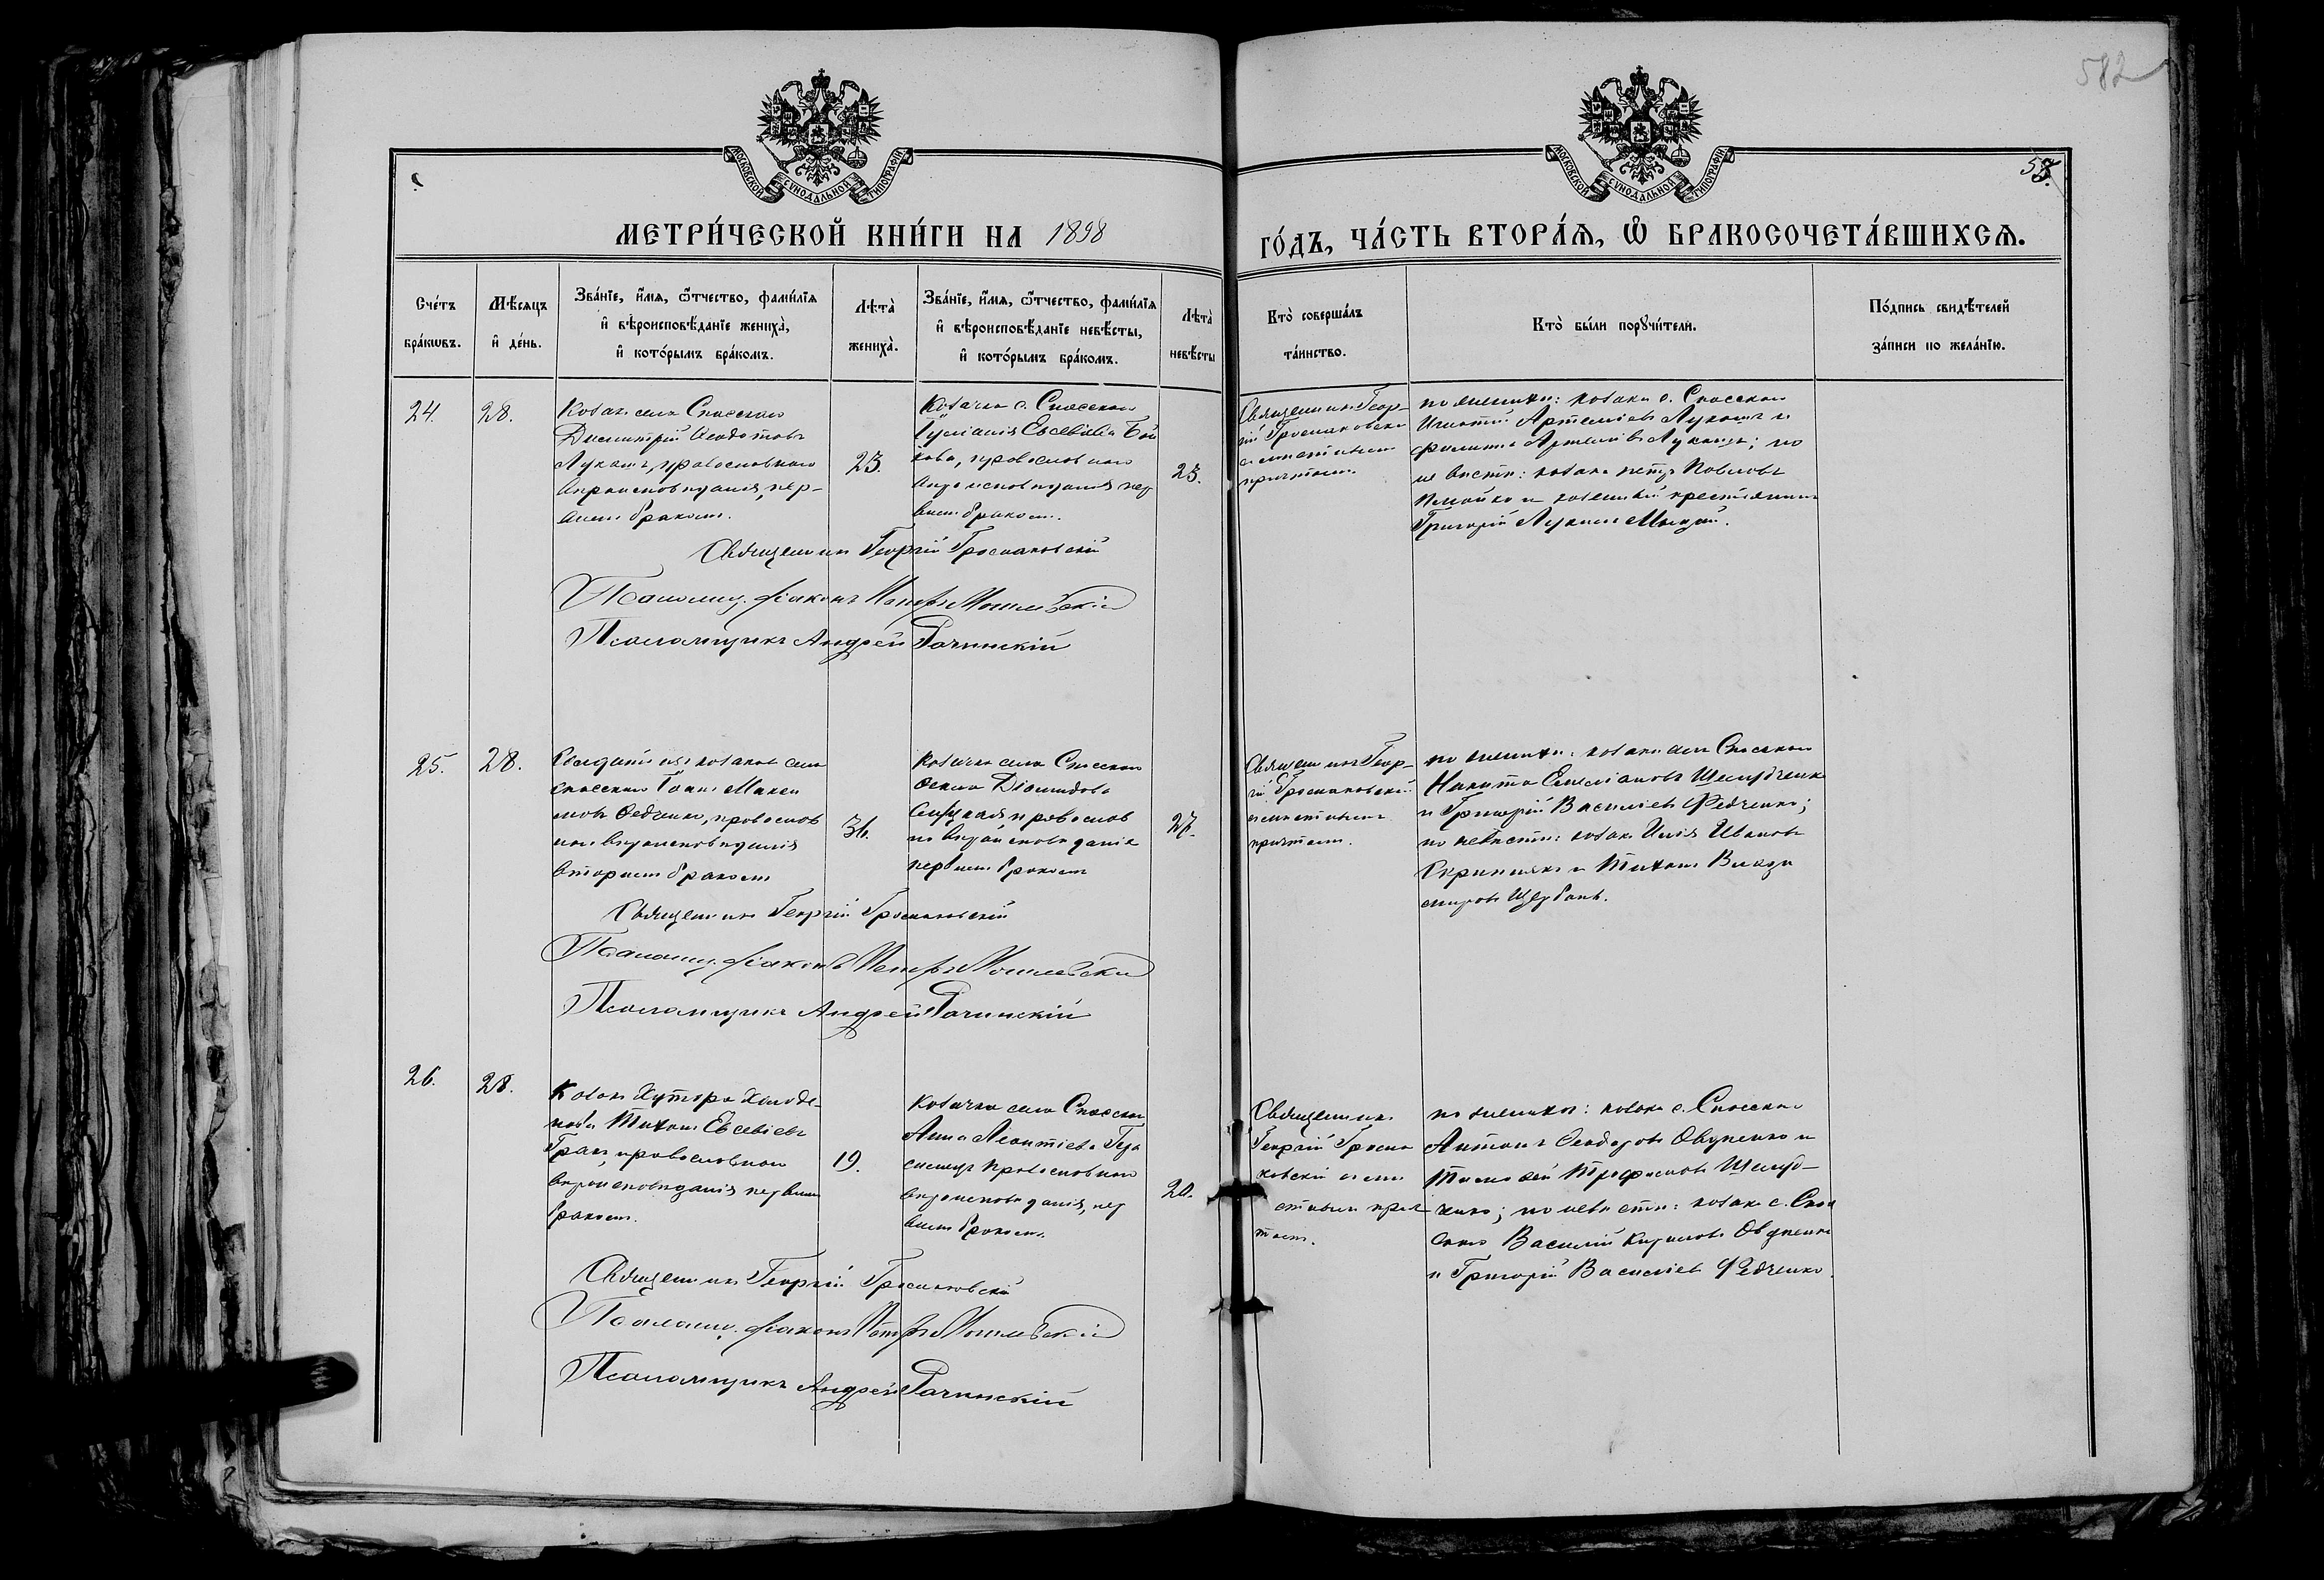 582
МОСКОВСКОЙ СѴНОДАЛЬНОЙ ТИПОГРАФІИ
МОСКОВСКОЙ СѴНОДАЛЬНОЙ ТИПОГРАФІИ
МЕТРИ́ЧЕСКОЙ КНИ́ГИ НА 1898
ГО́ДЪ, ЧА́СТЬ ВТОРА́Ѧ, Ѡ БРАКОСОЧЕТА́ВШИХСѦ.
Сче́тъ бра́кѡвъ.
Мѣ́сѧцъ и҆ де́нь.
Зва́нїе, и҆́мѧ, ѻ҆́тчество, фами́лїѧ
и҆ вѣроисповѣ́данїе жениха̀,
и҆ кото́рымъ бра́комъ.
Лѣта̀ жениха̀.
Зва́нїе, и҆́мѧ, ѻ҆́тчество, фами́лїѧ
и҆ вѣроисповѣ́данїе невѣ́сты,
и҆ кото́рымъ бра́комъ.
Лѣта̀ невѣ́сты
Кто̀ соверша́лъ та́инство.
Кто̀ бы́ли порꙋчи́тели.
По́дпись свидѣ́телей
за́писи по жела́нїю.
24.
28.
Козакъ села Спасскаго
Димитрій Ѳеодотовъ
Лукашъ, православнаго
вѣроисповѣданія, пер-
вымъ бракомъ.
23.
Козачка с. Спасскаго
Іуліанія Евсевіева
православнаго
вѣроисповѣданія пер
вымъ бракомъ.
23.
Священникъ Геор-
гій Громаковскій
съ мѣстнымъ
причтомъ.
по женихѣ: козаки с. Спасскаго
Игнатій Артеміевъ Лукашъ и
Филиппъ Артеміевъ Лукашъ; по
невѣстѣ: козакъ Петръ Павловъ
и казенный крестьянинъ
Григорій Лукинъ
Священникъ Георгій Громаковскій
Псаломщ. діаконъ Петръ Могилевскій
Псаломщикъ Андрей Рачинскій
25.
28.
изъ козаковъ села
Спасскаго Іоаннъ Макси
мовъ Ѳедченко, православ
наго вѣроисповѣданія
вторымъ бракомъ
36.
Козачка села Спасскаго
Ѳекла Діомидова
православ
наго вѣроисповѣданія
первымъ бракомъ
27.
Священникъ Геор-
гій Громаковскій
съ мѣстнымъ
причтомъ.
по женихѣ: козаки села Спасскаго
Никита Емеліановъ Шелудченко
и Григорій Василіевъ Федченко;
по невѣстѣ: козаки Илія Ивановъ
и Тихонъ Влади
мировъ Щербань.
Священникъ Георгій Громаковскій
Псаломщ. діаконъ Петръ Могилевскій
Псаломщикъ Андрей Рачинскій
26.
28.
Козакъ хутора
Тихонъ Евсевіевъ
православнаго
вѣроисповѣданія первымъ
бракомъ.
19.
Козачка села Спасскаго
Анна Леонтіева
православнаго
вѣроисповѣданія, пер
вымъ бракомъ.
20.
Священникъ
Георгій Громa
ковскій съ мѣ
стнымъ прич
томъ.
по женихѣ: козаки с. Спасскаго
Антонъ Ѳеодоровъ Овдіенко и
Тимоѳей Трофимовъ Шелуд-
ченко; по невѣстѣ: козаки с. Спас
скаго Василій Кириловъ Овдіенко
и Григорій Василіевъ Федченко.
Священникъ Георгій Громаковскій
Псаломщ. діаконъ Петръ Могилевскій
Псаломщикъ Андрей Рачинскій